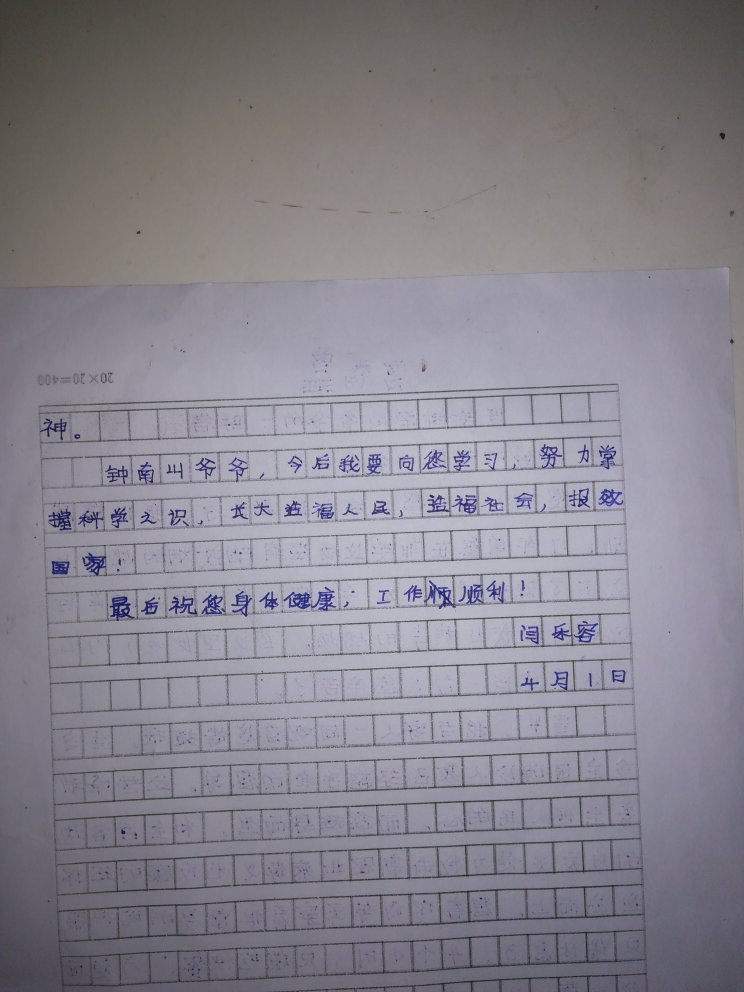 20×20=400
神。
钟南山爷爷，今后我要向您学习，努力掌
握科学之识，长大造福人民，造福社会，报效
国家！
最后祝您身体健康，工作顺利！
闫乐容
4月1日